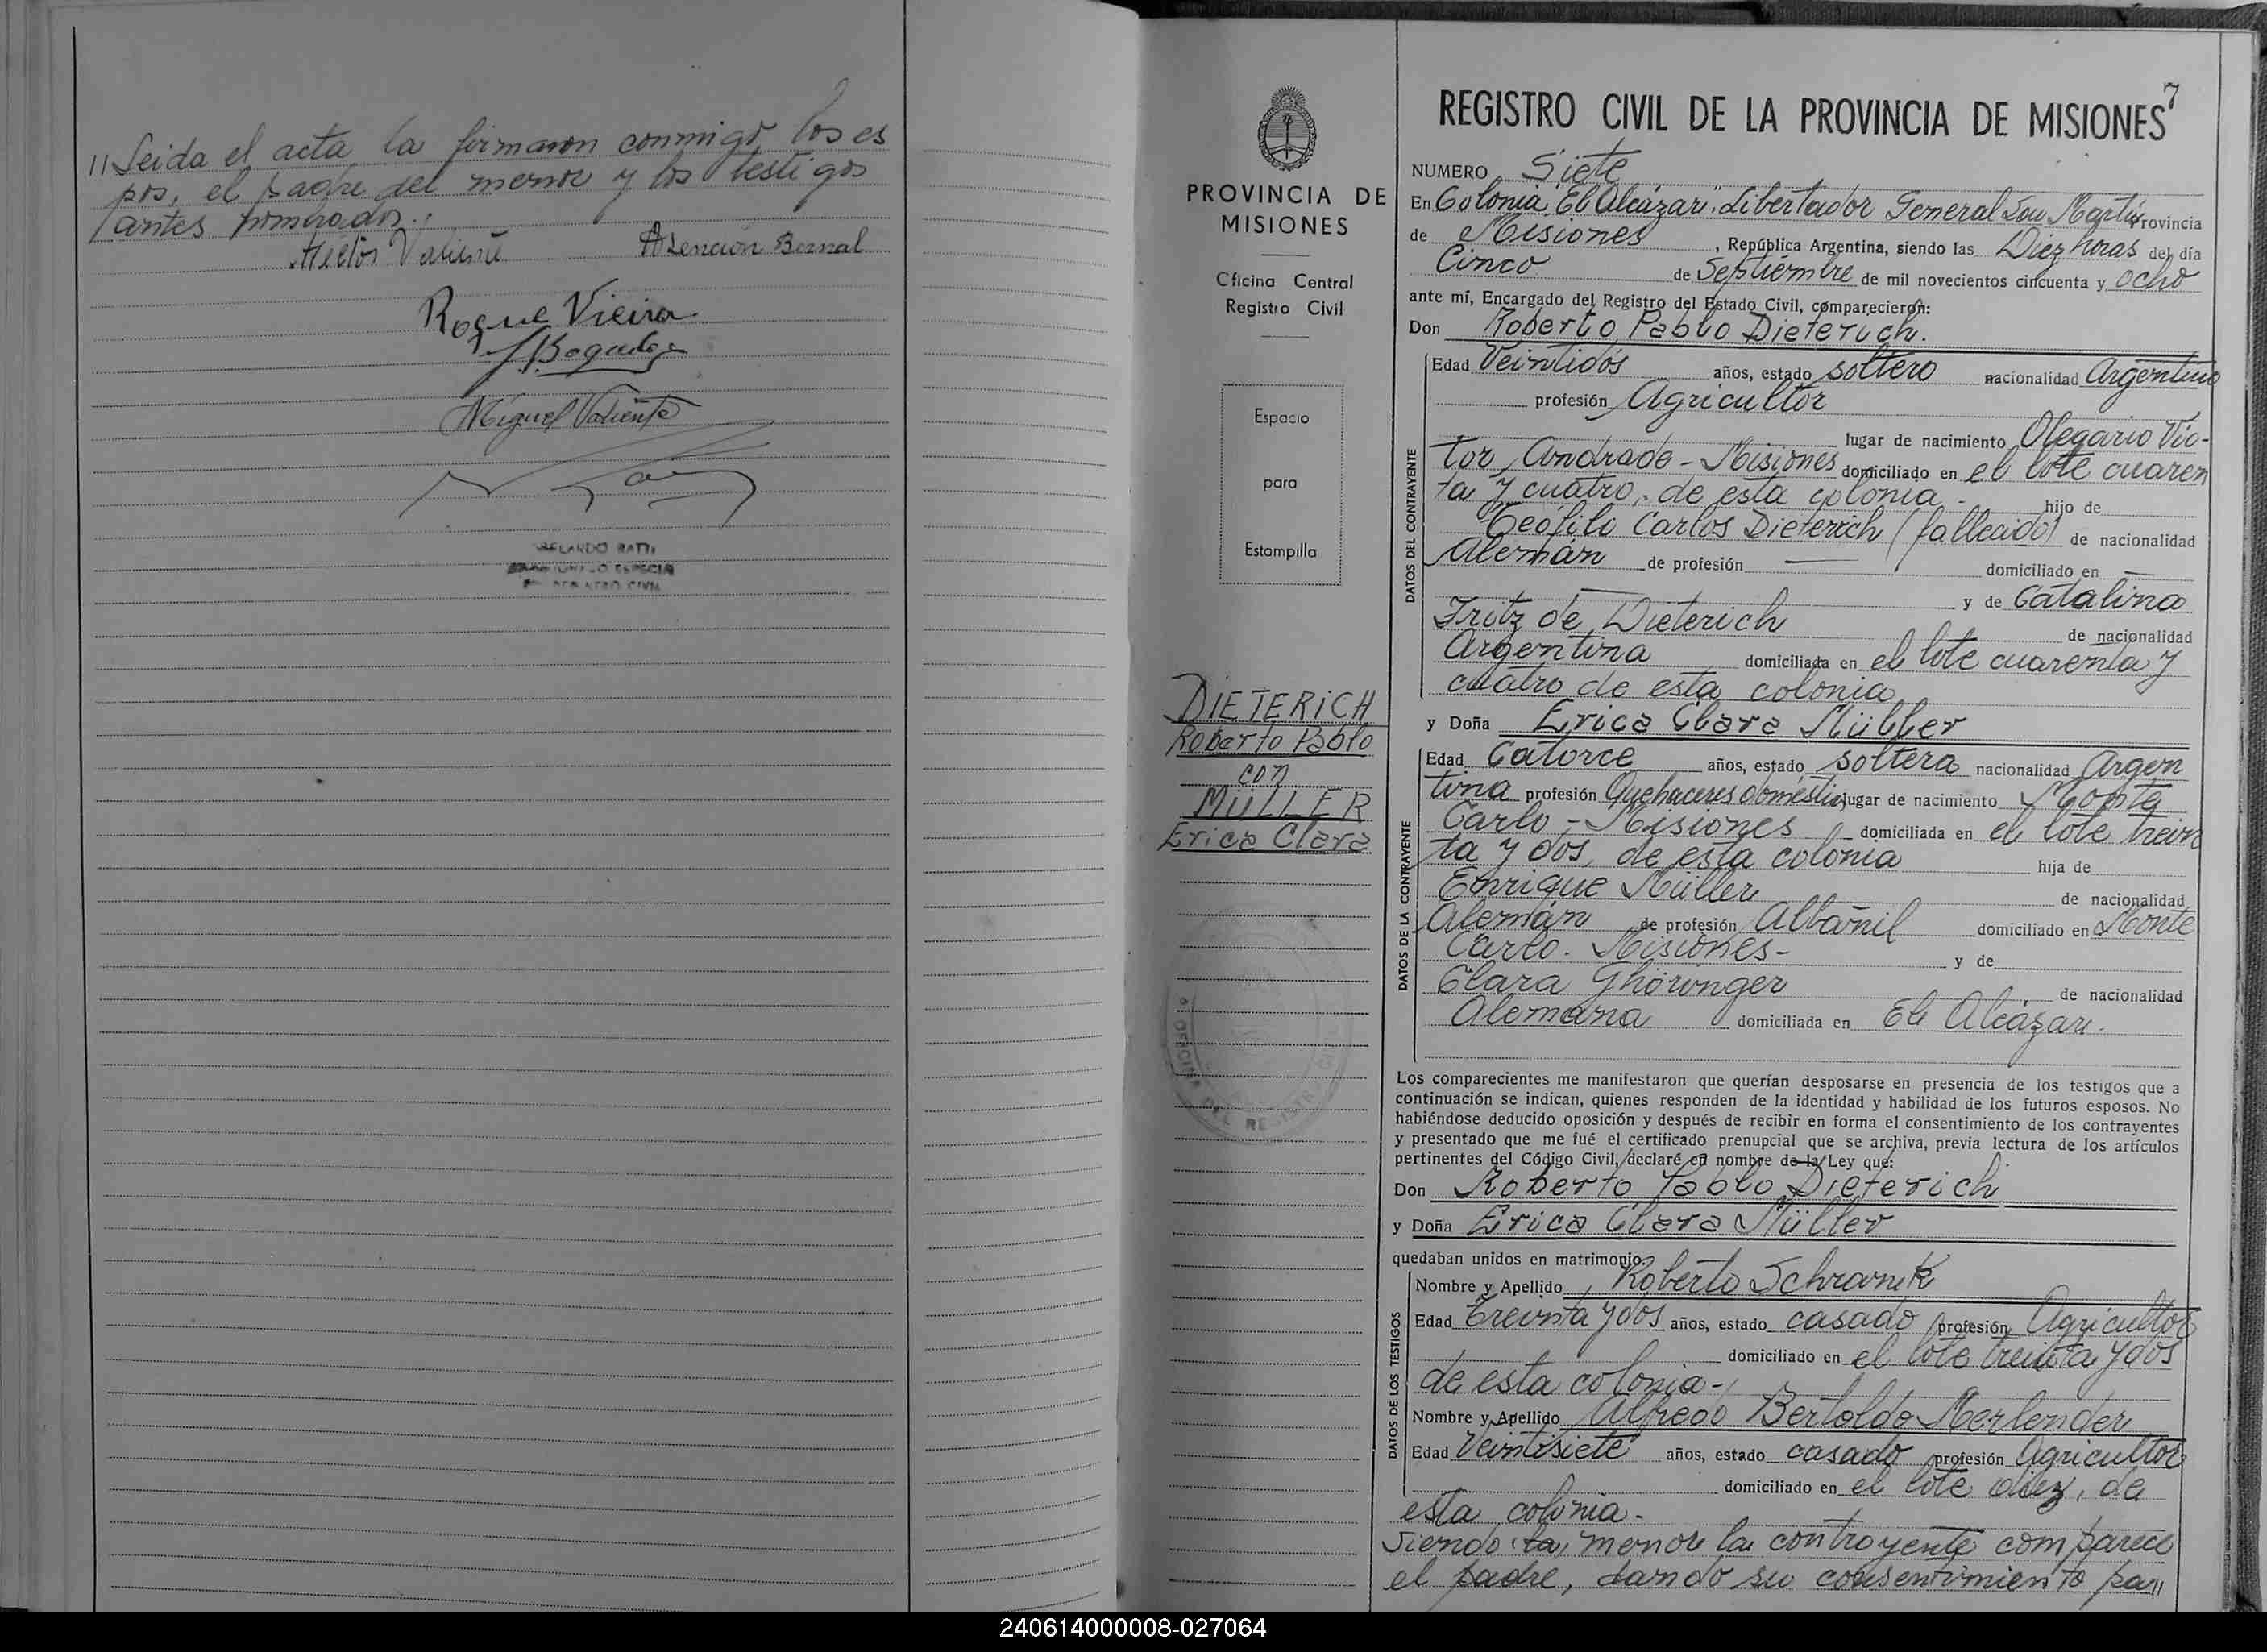 // Leida el acta la firmaron conmigo, los es
pos, el padre del menor y los testigos
antes nombrados.
Hector Valiente Asención Bernal
Roque Vieira
Miguel Valiente
REGISTRO CIVIL
7
PROVINCIA DE
MISIONES
Oficina Central
Registro Civil
Espacio
para
Estampilla
DIETERICH
Roberto Pablo
con
MÜLLER
Erica Clara
OFICINA DEL REGISTRO
REGISTRO CIVIL DE LA PROVINCIA DE MISIONES
NUMERO Siete
En Colonia "El Alcázar". Libertador General San Martín Provincia
de Misiones, República Argentina, siendo las Diez horas del día
Cinco de Septiembre de mil novecientos cincuenta y ocho
ante mí, Encargado del Registro del Estado Civil, comparecieron:
Don Roberto Pablo Dieterich.
DATOS DEL CONTRAYENTE
Edad Veintidós años, estado soltero nacionalidad Argentino
profesión Agricultor
lugar de nacimiento Olegario Víc-
tor Andrade - Misiones domiciliado en el lote cuaren
ta y cuatro, de esta colonia - hijo de
Teófilo Carlos Dieterich (fallecido) de nacionalidad
Alemán de profesión — domiciliado en —
— y de Catalina
Fritz de Dieterich de nacionalidad
Argentina domiciliada en el lote cuarenta y
cuatro de esta colonia
y Doña Erica Clara Müller
DATOS DE LA CONTRAYENTE
Edad Catorce años, estado soltera nacionalidad Argen
tina profesión Quehaceres domésticos lugar de nacimiento Monte
Carlo - Misiones domiciliada en el lote trein
ta y dos, de esta colonia hija de
Enrique Müller de nacionalidad
Alemán de profesión Albañil domiciliado en Monte
Carlo. Misiones - y de
Clara Ghöringer de nacionalidad
Alemana domiciliada en El Alcázar.
Los comparecientes me manifestaron que querían desposarse en presencia de los testigos que a
continuación se indican, quienes responden de la identidad y habilidad de los futuros esposos. No
habiéndose deducido oposición y después de recibir en forma el consentimiento de los contrayentes
y presentado que me fué el certificado prenupcial que se archiva, previa lectura de los artículos
pertinentes del Código Civil, declaré en nombre de la Ley que:
Don Roberto Pablo Dieterich
y Doña Erica Clara Müller
quedaban unidos en matrimonio.
DATOS DE LOS TESTIGOS
Nombre y Apellido Roberto Schrank
Edad Treinta y dos años, estado casado profesión Agricultor
domiciliado en el lote treinta y dos
de esta colonia -
Nombre y Apellido Alfredo Bertoldo Merlender
Edad Veintisiete años, estado casado profesión Agricultor
domiciliado en el lote diez, de
esta colonia -
Siendo la menor la contrayente comparece
el padre, dando su consentimiento pa//
240614000008-027064